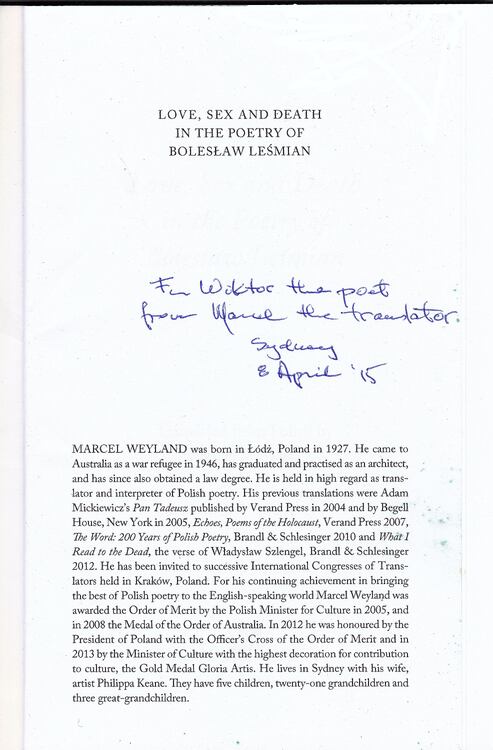 LOVE, SEX AND DEATH
IN THE POETRY OF
BOLESŁAW LEŚMIAN
For Wiktor the poet
from Marcel the translator.
Sydney
8 April '15
MARCEL WEYLAND was born in Łódź, Poland in 1927. He came to
Australia as a war refugee in 1946, has graduated and practised as an architect,
and has since also obtained a law degree. He is held in high regard as trans-
lator and interpreter of Polish poetry. His previous translations were Adam
Mickiewicz's Pan Tadeusz published by Verand Press in 2004 and by Begell
House, New York in 2005, Echoes, Poems of the Holocaust, Verand Press 2007,
The Word: 200 Years of Polish Poetry, Brandl & Schlesinger 2010 and What I
Read to the Dead, the verse of Władysław Szlengel, Brandl & Schlesinger
2012. He has been invited to successive International Congresses of Trans-
lators held in Kraków, Poland. For his continuing achievement in bringing
the best of Polish poetry to the English-speaking world Marcel Weyland was
awarded the Order of Merit by the Polish Minister for Culture in 2005, and
in 2008 the Medal of the Order of Australia. In 2012 he was honoured by the
President of Poland with the Officer's Cross of the Order of Merit and in
2013 by the Minister of Culture with the highest decoration for contribution
to culture, the Gold Medal Gloria Artis. He lives in Sydney with his wife,
artist Philippa Keane. They have five children, twenty-one grandchildren and
three great-grandchildren.